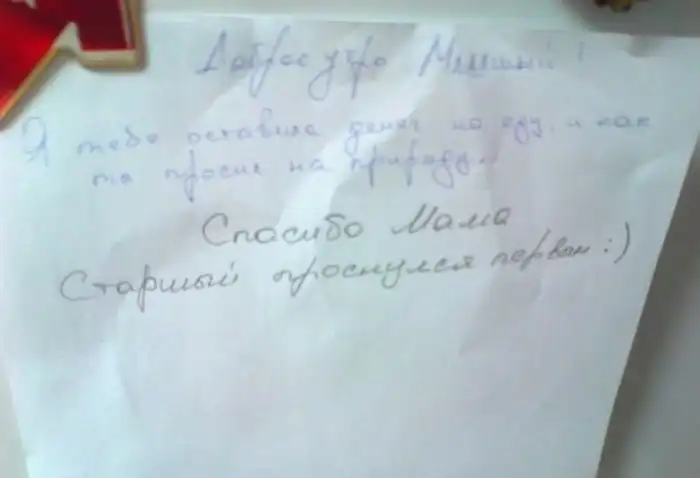 Доброе утро Младший!
Я тебе оставила денег на еду, и как
ты просил на природу.
Спасибо Мама
Старший проснулся первым :)